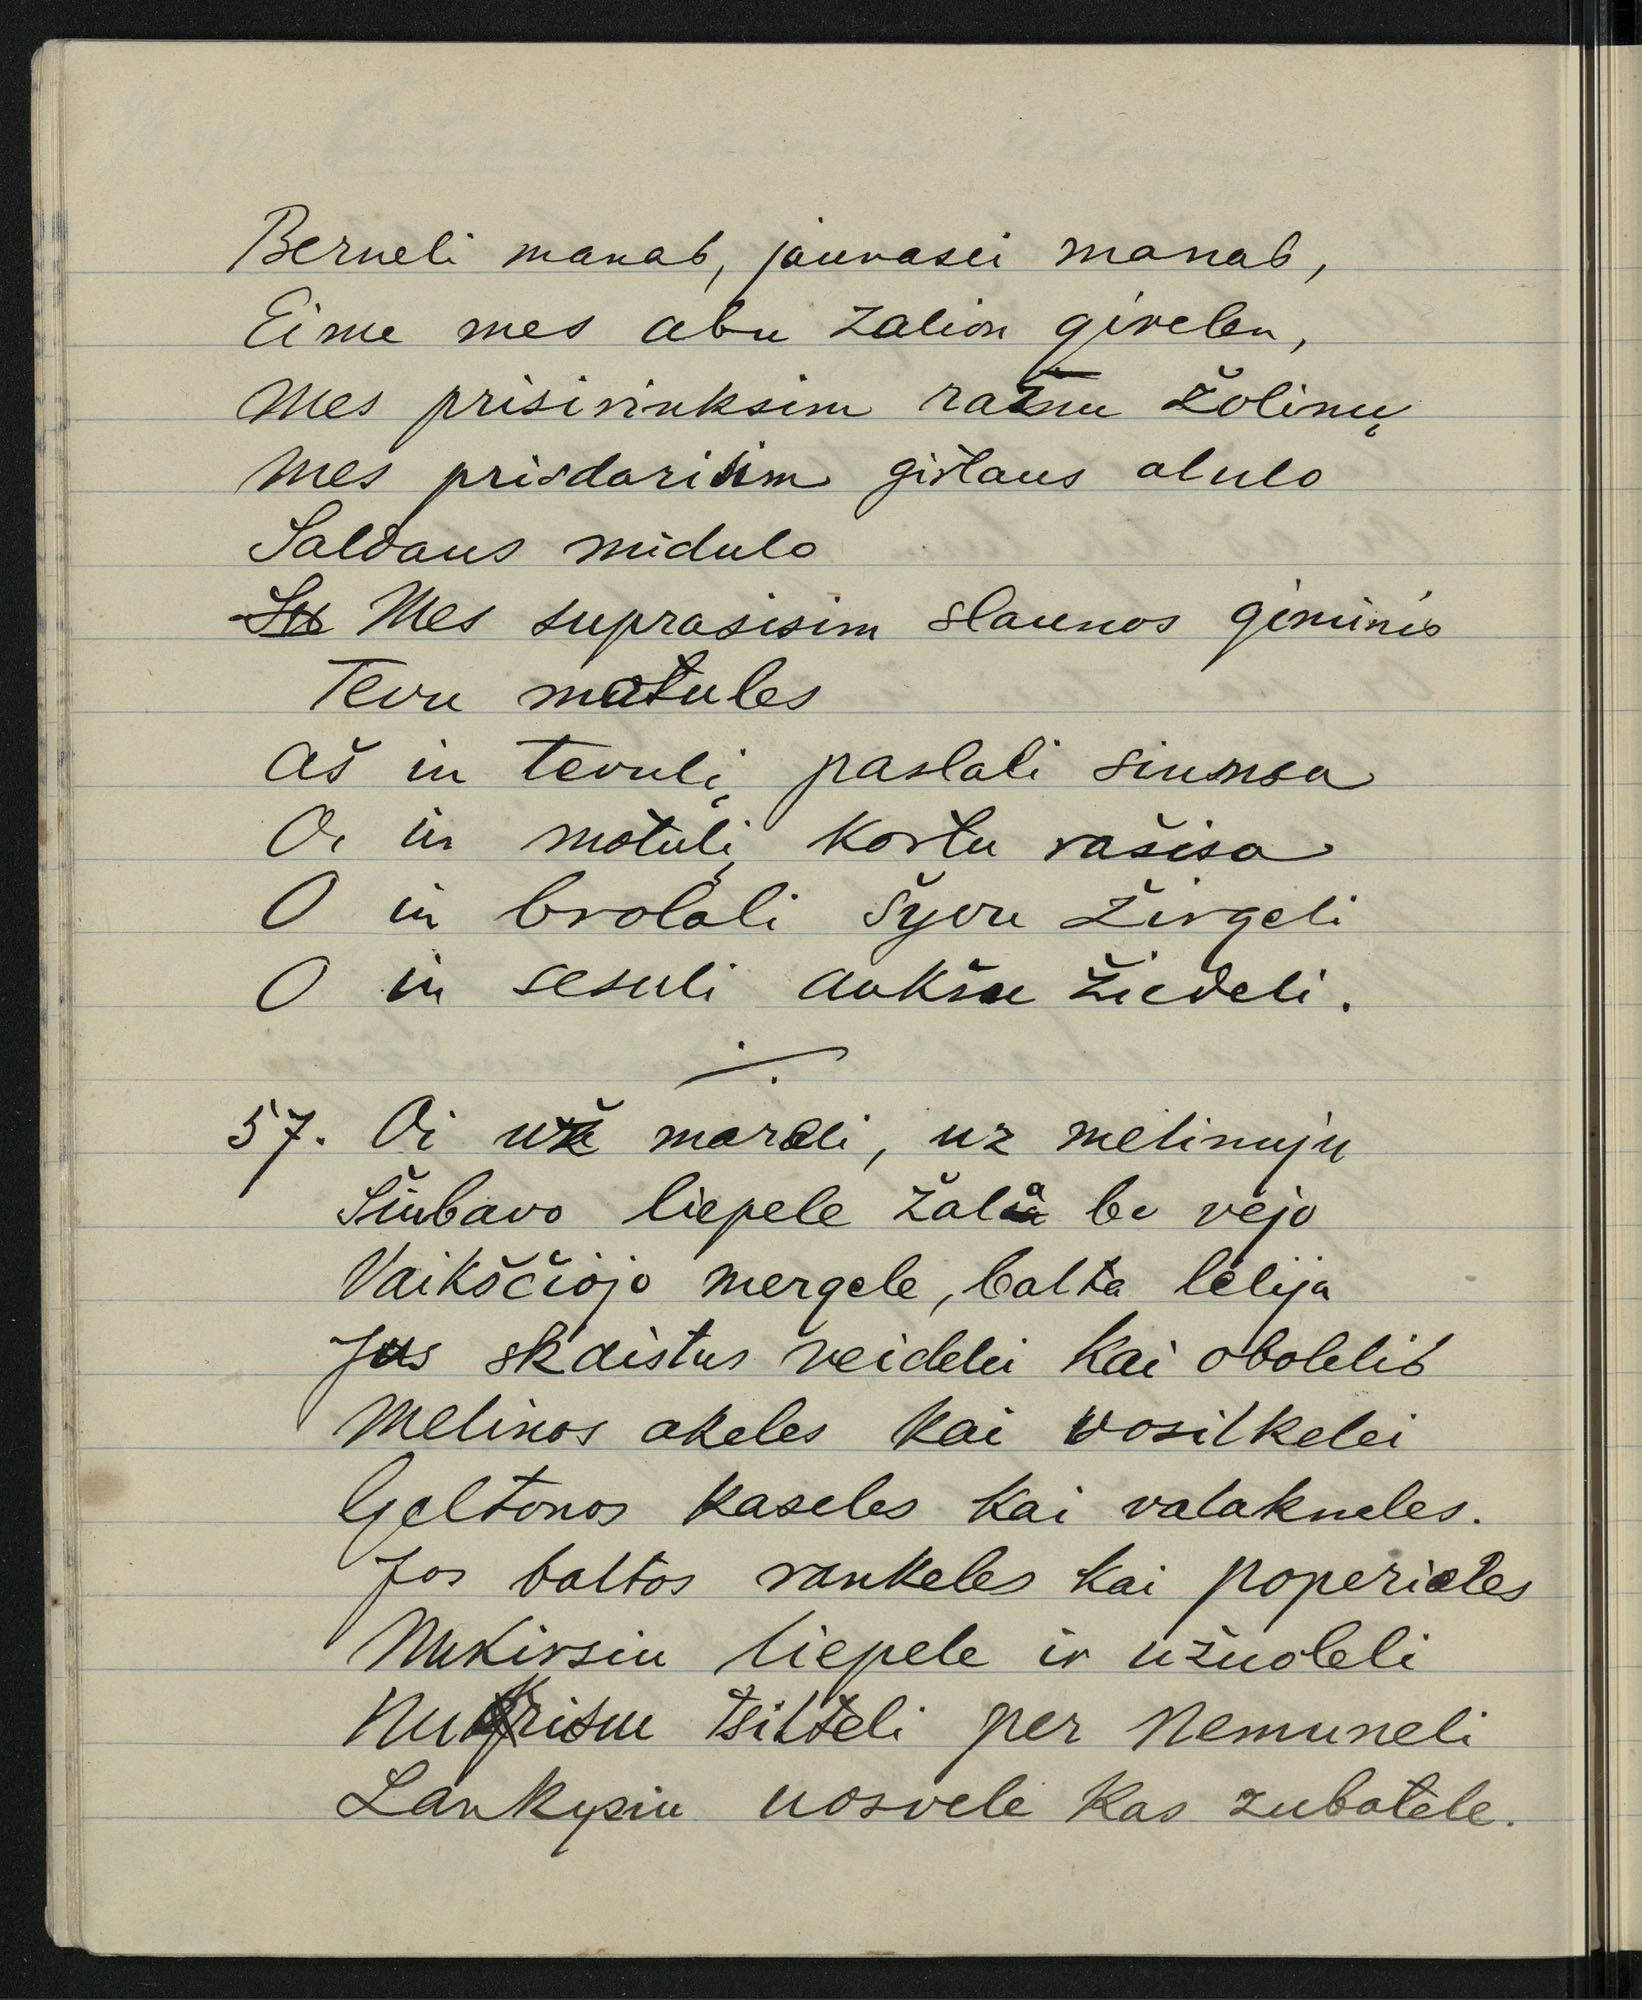 Berneli manas, jaunasei manas,
Eime mes abu zalion girelen,
Mes prisirinksimražnu žolinų
Mes prisdarisim girtaus alulo
Saldaus midulo
Su Mes suprasisim slaunos giminis
Tevu motules
Aš in tevulį paslali siunsa
O in motulį kortu rašisa
O in brolali šyvu žirgeli
O in sesuli aukšu žiedeli.
57. Oi už marali, uz melinuju
Siubavo liepele žala be vejo
Vaikščiojo mergele, balta lelija
Jus skaistus veidelei kai obolelis
Melinos akeles kai vosilkelei
Geltonos kaseles kai valakneles.
Jos baltos rankeles kai poperieles
Nukirsiu liepele ir užuoleli
Nukrisiu tsilteli per Nemuneli
Lankysiu uosvele kas subatele.